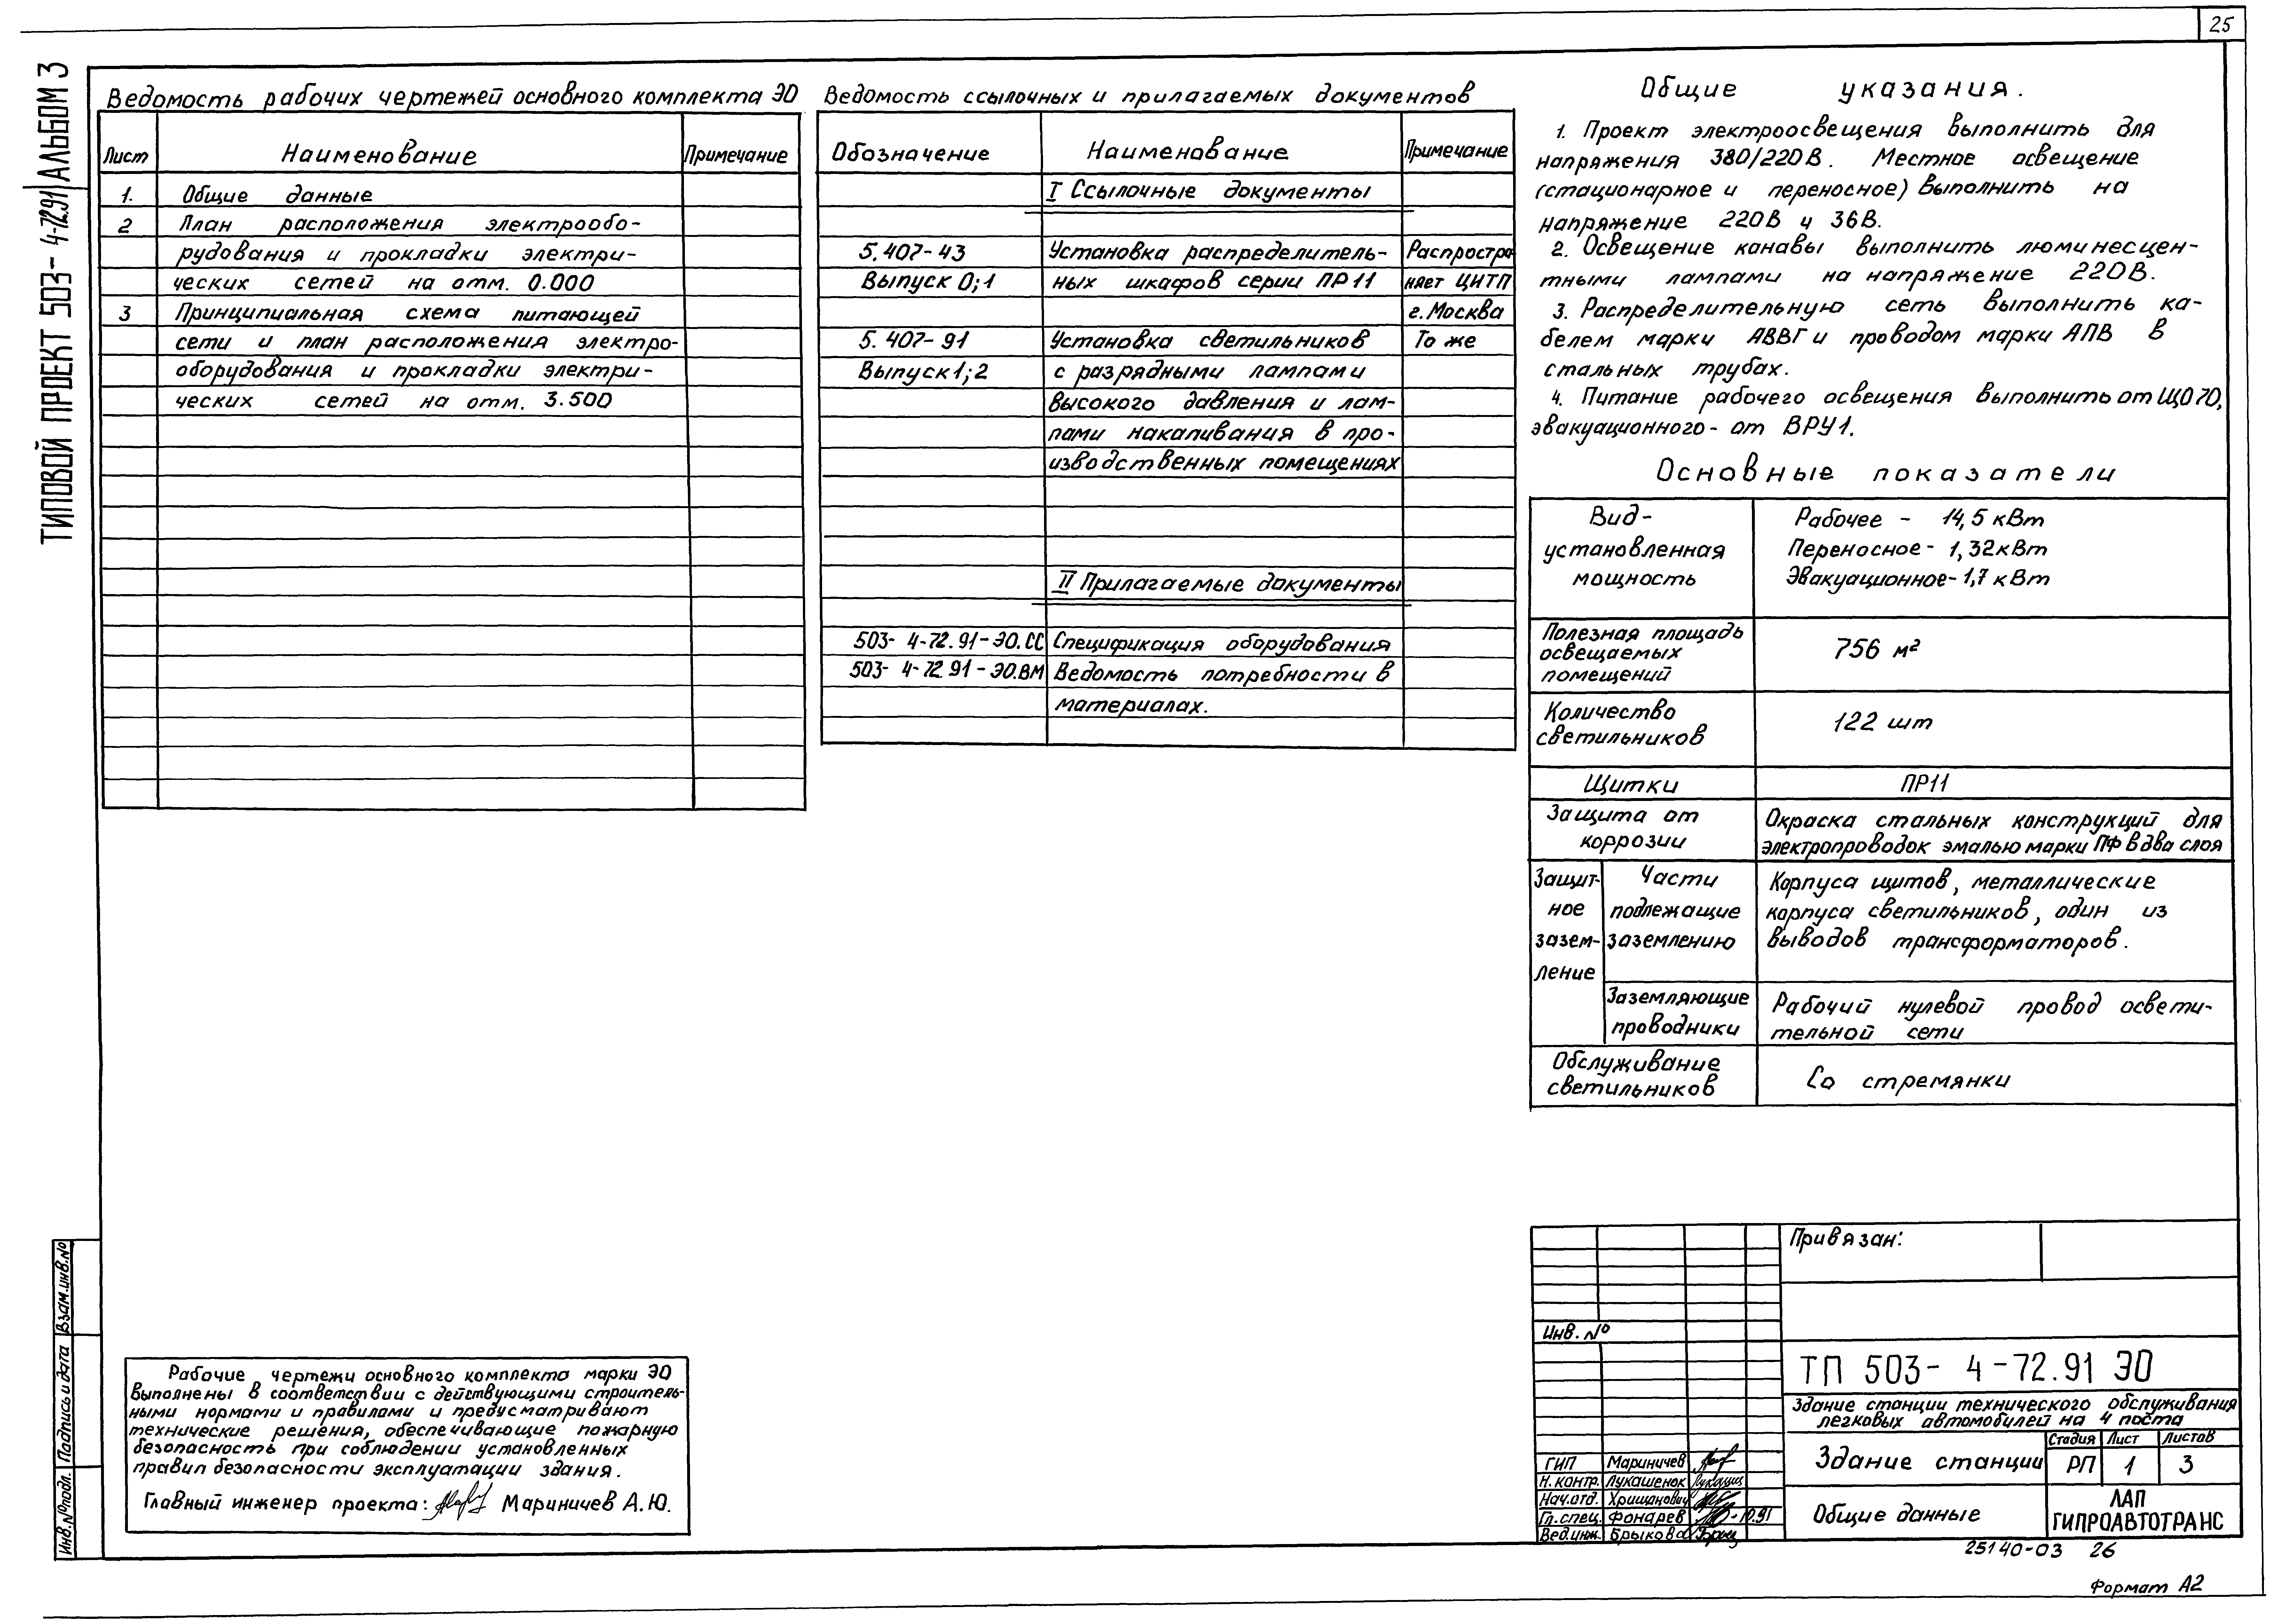 25
ТИПОВОЙ ПРОЕКТ 503-4-72.91 АЛЬБОМ 3
Ведомость рабочих чертежей основного комплекта ЭО
Лист Наименование Примечание
1. Общие данные
2 План расположения электрообо-
рудования и прокладки электри-
ческих сетей на отм. 0.000
3 Принципиальная схема питающей
сети и план расположения электро-
оборудования и прокладки электри-
ческих сетей на отм. 3.500
Ведомость ссылочных и прилагаемых документов
Обозначение Наименование Примечание
I Ссылочные документы
5.407-43 Установка распределитель- Распростра
Выпуск 0;1 ных шкафов серии ПР11 няет ЦИТП
г. Москва
5.407-91 Установка светильников То же
Выпуск 1;2 с разрядными лампами
высокого давления и лам-
пами накаливания в про-
изводственных помещениях
II Прилагаемые документы
503-4-72.91-ЭО.СС Спецификация оборудования
503-4-72.91-ЭО.ВМ Ведомость потребности в
материалах.
Общие указания.
1. Проект электроосвещения выполнить для
напряжения 380/220В. Местное освещение
(стационарное и переносное) выполнить на
напряжение 220В и 36В.
2. Освещение канавы выполнить люминесцен-
тными лампами на напряжение 220В.
3. Распределительную сеть выполнить ка-
белем марки АВВГ и проводом марки АПВ в
стальных трубах.
4. Питание рабочего освещения выполнить от ЩО70,
эвакуационного - от ВРУ1.
Основные показатели
Вид- Рабочее - 14,5 кВт
установленная Переносное - 1,32 кВт
мощность Эвакуационное - 1,7 кВт
Полезная площадь
освещаемых 756 м²
помещений
Количество 122 шт
светильников
Щитки ПР11
Защита от Окраска стальных конструкций для
коррозии электропроводок эмалью марки ПФ в два слоя
Защит- Части Корпуса щитов, металлические
ное подлежащие корпуса светильников, один из
зазем- заземлению выводов трансформаторов.
ление
Заземляющие Рабочий нулевой провод освети-
проводники тельной сети
Обслуживание Со стремянки
светильников
Рабочие чертежи основного комплекта марки ЭО
выполнены в соответствии с действующими строитель-
ными нормами и правилами и предусматривают
технические решения, обеспечивающие пожарную
безопасность при соблюдении установленных
правил безопасности эксплуатации здания.
Главный инженер проекта: Мариничев А.Ю.
Взам.инв.№
Подпись и дата
Инв.№подл.
Привязан:
Инв. №
ТП 503-4-72.91 ЭО
Здание станции технического обслуживания
легковых автомобилей на 4 поста
Стадия Лист Листов
Здание станции РП 1 3
ГИП Мариничев
Н. контр. Лукашенок
Нач.отд. Хришанович
Гл.спец. Фонарев 10.91
Вед.инж. Брыкова
Общие данные
ЛАП
ГИПРОАВТОТРАНС
25140-03 26
Формат А2